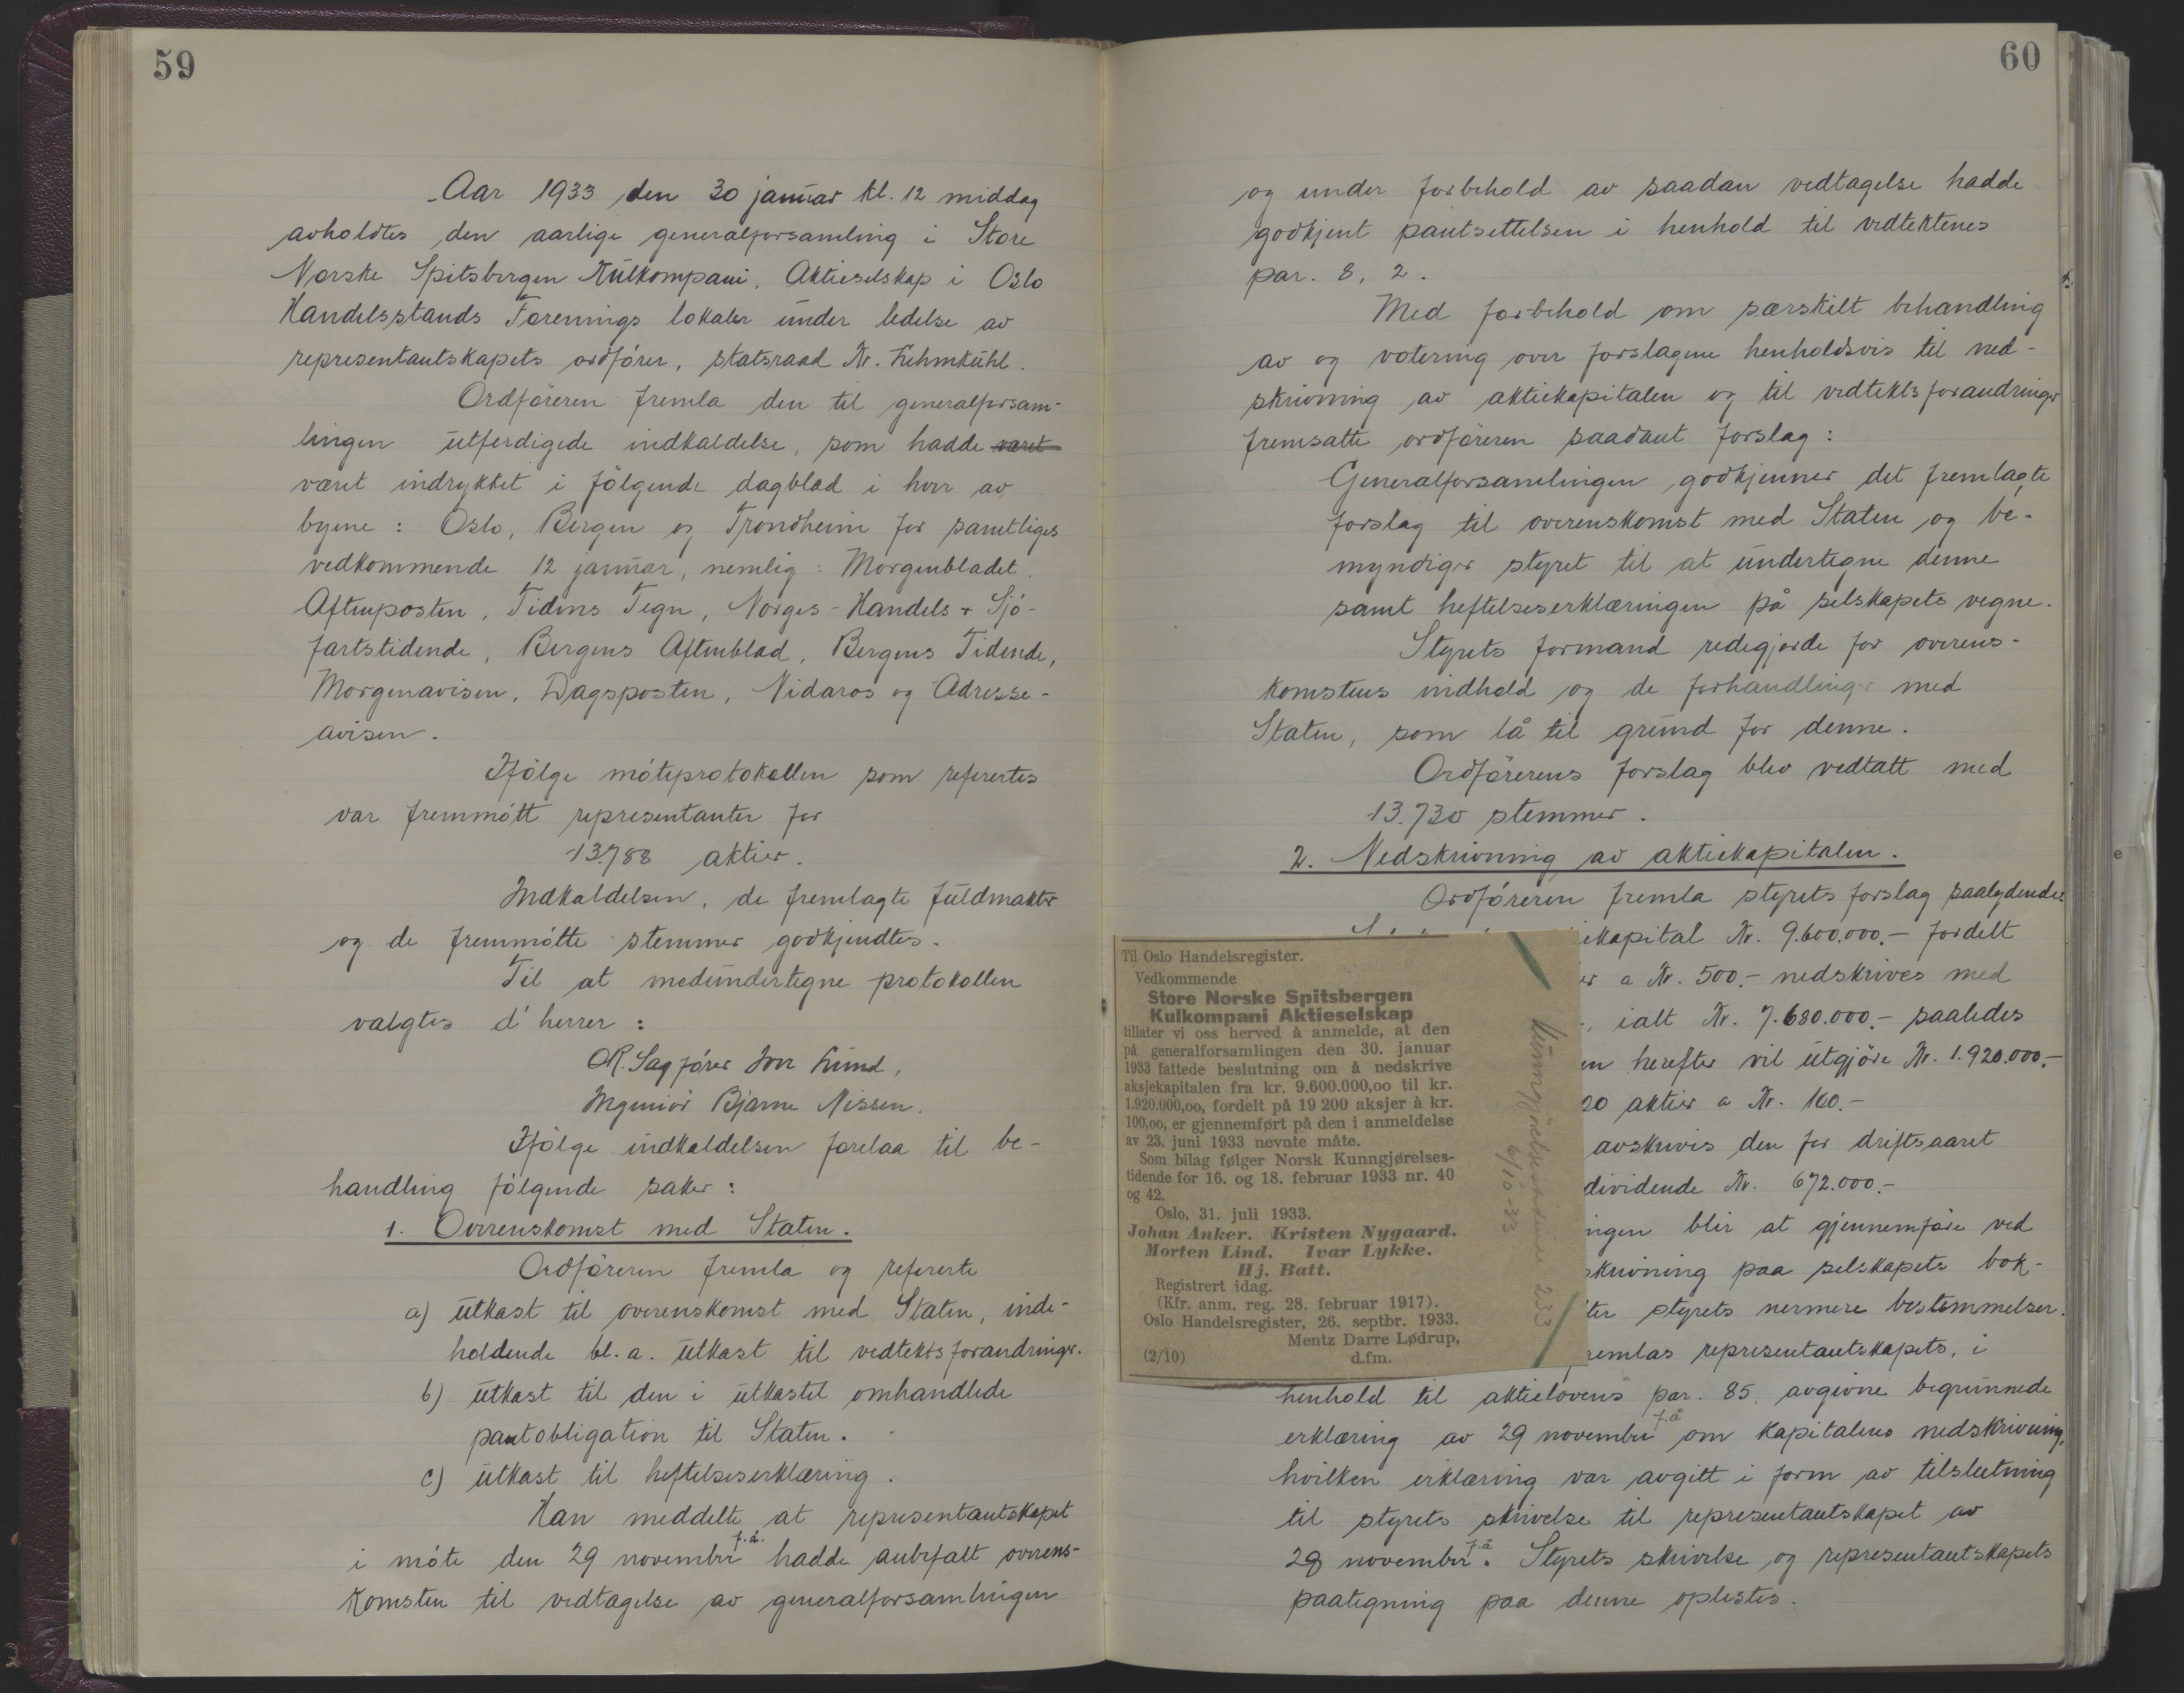 59
Aar 1933 den 30 januar kl. 12 middag
avholdtes den aarlige generalforsamling i Store
Norske Spitsbergen Kulkompani, Aktieselskap i Oslo
Handelsstands Forenings lokaler under ledelse av
representantskapets ordfører, statsraad Kr. Lehmkuhl.
Ordføreren fremla den til generalforsam-
lingen utferdigede indkaldelse, som hadde været
været indrykket i følgende dagblad i hver av
byene: Oslo, Bergen og Trondheim for samtliges
vedkommende 12 januar, nemlig: Morgenbladet,
Aftenposten, Tidens Tegn, Norges-Handels & Sjø-
fartstidende, Bergens Aftenblad, Bergens Tidende,
Morgenavisen, Dagsposten, Nidaros og Adresse-
avisen.
Ifølge møteprotokollen som refertes
var fremmøtt representanter for
13.788 aktier.
Indkaldelsen, de fremlagte fuldmakter
og de fremmøtte stemmer godkjendtes.
Til at medundertegne protokollen
valgtes d' herrer:
O.R. Sagfører Iver Lund,
Ingeniør Bjarne Nissen.
Ifølge indkaldelsen forelaa til be-
handling følgende saker:
1. Overenskomst med Staten.
Ordføreren fremla og refererte
a) utkast til overenskomst med Staten, inde-
holdende bl.a. utkast til vedtektsforandringer.
b) utkast til den i utkastet omhandlede
pantobligation til Staten.
c) utkast til heftelseserklæring.
Han meddelte at representantskapet
i møte den 29 november f.å. hadde anbefalt overens-
komsten til vedtagelse av generalforsamlingen
60
og under forbehold av saadan vedtagelse hadde
godkjent pantsettelsen i henhold til vedtektenes
par. 8, 2.
Med forbehold om særskilt behandling
av og votering over forslagene henholdsvis til ned-
skrivning av aktiekapitalen og til vedtektsforandringer
fremsatte ordføreren saadant forslag:
Generalforsamlingen godkjenner det fremlagte
forslag til overenskomst med Staten og be-
myndiger styret til at undertegne denne
samt heftelseserklæringen på selskapets vegne.
Styrets formand redegjorde for overens-
komstens indhold og de forhandlinger med
Staten, som lå til grund for denne.
Ordførerens forslag blev vedtatt med
13.730 stemmer.
2. Nedskrivning av aktiekapitalen.
Ordføreren fremla styrets forslag saalydende:
iekapital Kr. 9.600.000.- fordelt
er a Kr. 500.- nedskrives med
-, ialt Kr. 7.680.000.- saaledes
en herefter vil utgjøre Kr. 1.920.000.-
00 aktier a Kr. 100.-
avskrives den for driftsaaret
dividende Kr. 672.000.-
ingen blir at gjennemføre ved
skrivning paa selskapets bok-
ter styrets nermere bestemmelser.
remlas representantskapets, i
henhold til aktielovens par. 85, avgivne begrunnede
erklæring av 29 november f.å om kapitalens nedskrivning,
hvilken erklæring var avgitt i form av tilslutning
til styrets skrivelse til representantskapet av
29 november f.å. Styrets skrivelse og representantskapets
paategning paa denne oplestes.
Til Oslo Handelsregister.
Vedkommende
Store Norske Spitsbergen
Kulkompani Aktieselskap
tillater vi oss herved å anmelde, at den
på generalforsamlingen den 30. januar
1933 fattede beslutning om å nedskrive
aksjekapitalen fra kr. 9.600.000,oo til kr.
1.920.000,oo, fordelt på 19 200 aksjer à kr.
100,oo, er gjennemført på den i anmeldelse
av 23. juni 1933 nevnte måte.
Som bilag følger Norsk Kunngjørelses-
tidende for 16. og 18. februar 1933 nr. 40
og 42.
Oslo, 31. juli 1933.
Johan Anker. Kristen Nygaard.
Morten Lind. Ivar Lykke.
Hj. Batt.
Registrert idag.
(Kfr. anm. reg. 28. februar 1917).
Oslo Handelsregister, 26. septbr. 1933.
Mentz Darre Lødrup,
(2/10) d.fm.
Kunngjørelsestidende 233
6/10-33